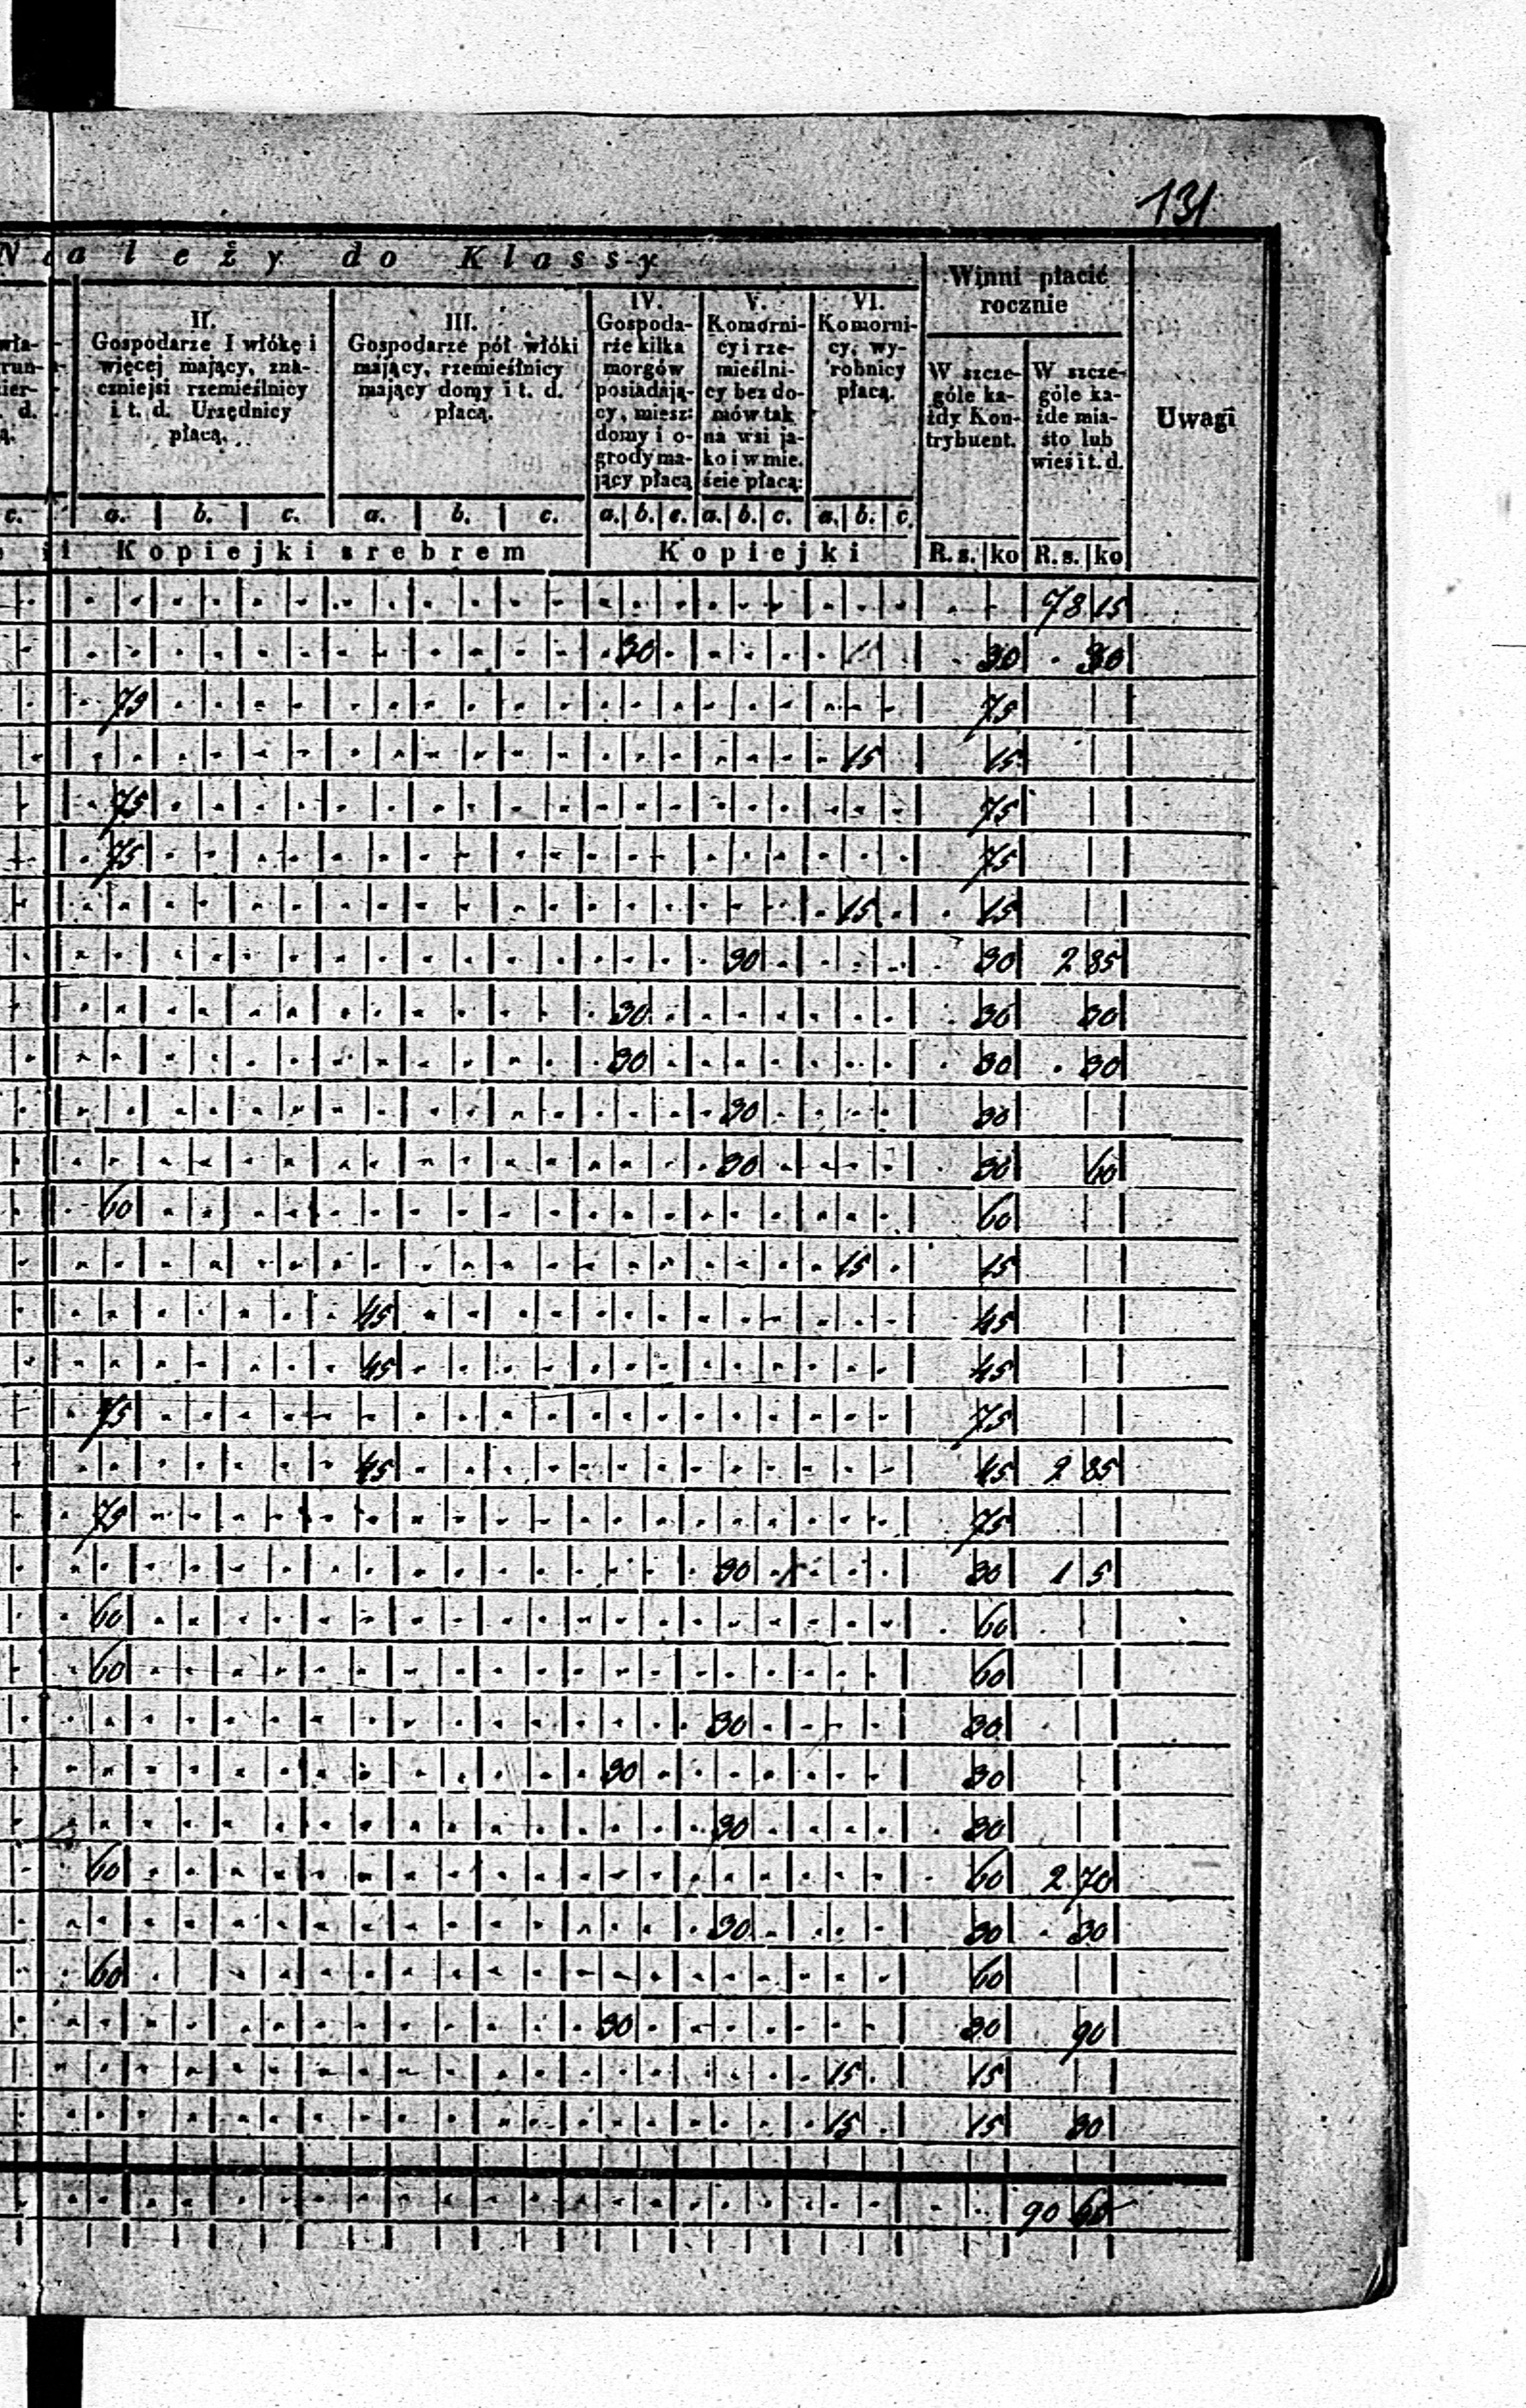 131
Należy do Klassy
Winni płacić
rocznie
Uwagi
II.
Gospodarze I włókę i
więcej mający, zna-
czniejsi rzemieślnicy
i t. d. Urzędnicy
płacą.
III.
Gospodarze pół włóki
mający, rzemieślnicy
mający domy i t. d.
płacą.
IV.
Gospoda-
rze kilka
morgów
posiadają-
cy, miesz:
domy i o-
grody ma-
jący płacą
V.
Komorni-
cy i rze-
mieślni-
cy bez do-
mów tak
na wsi ja-
ko i w mie.
ście płacą:
VI.
Komorni-
cy, wy-
robnicy
płacą.
W szcze-
góle ka-
żdy Kon-
trybuent.
W szcze-
góle ka-
żde mia-
sto lub
wieś i t. d.
c. a. b. c. a. b. c. a. b. c. a. b. c. a. b. c.
Kopiejki srebrem Kopiejki R. s. ko R. s. ko
78 15
30 30 30
75 75
15 15
75 75
75 75
15 15
30 30 2 85
30 30 30
30 30 30
30 30
30 30 60
60 60
15 15
45 45
45 45
75 75
45 45 2 85
75 75
30 30 1 5
60 60
60 60
30 30
30 30
30 30
60 60 2 70
30 30 30
60 60
30 30 90
15 15
15 15 30
90 60